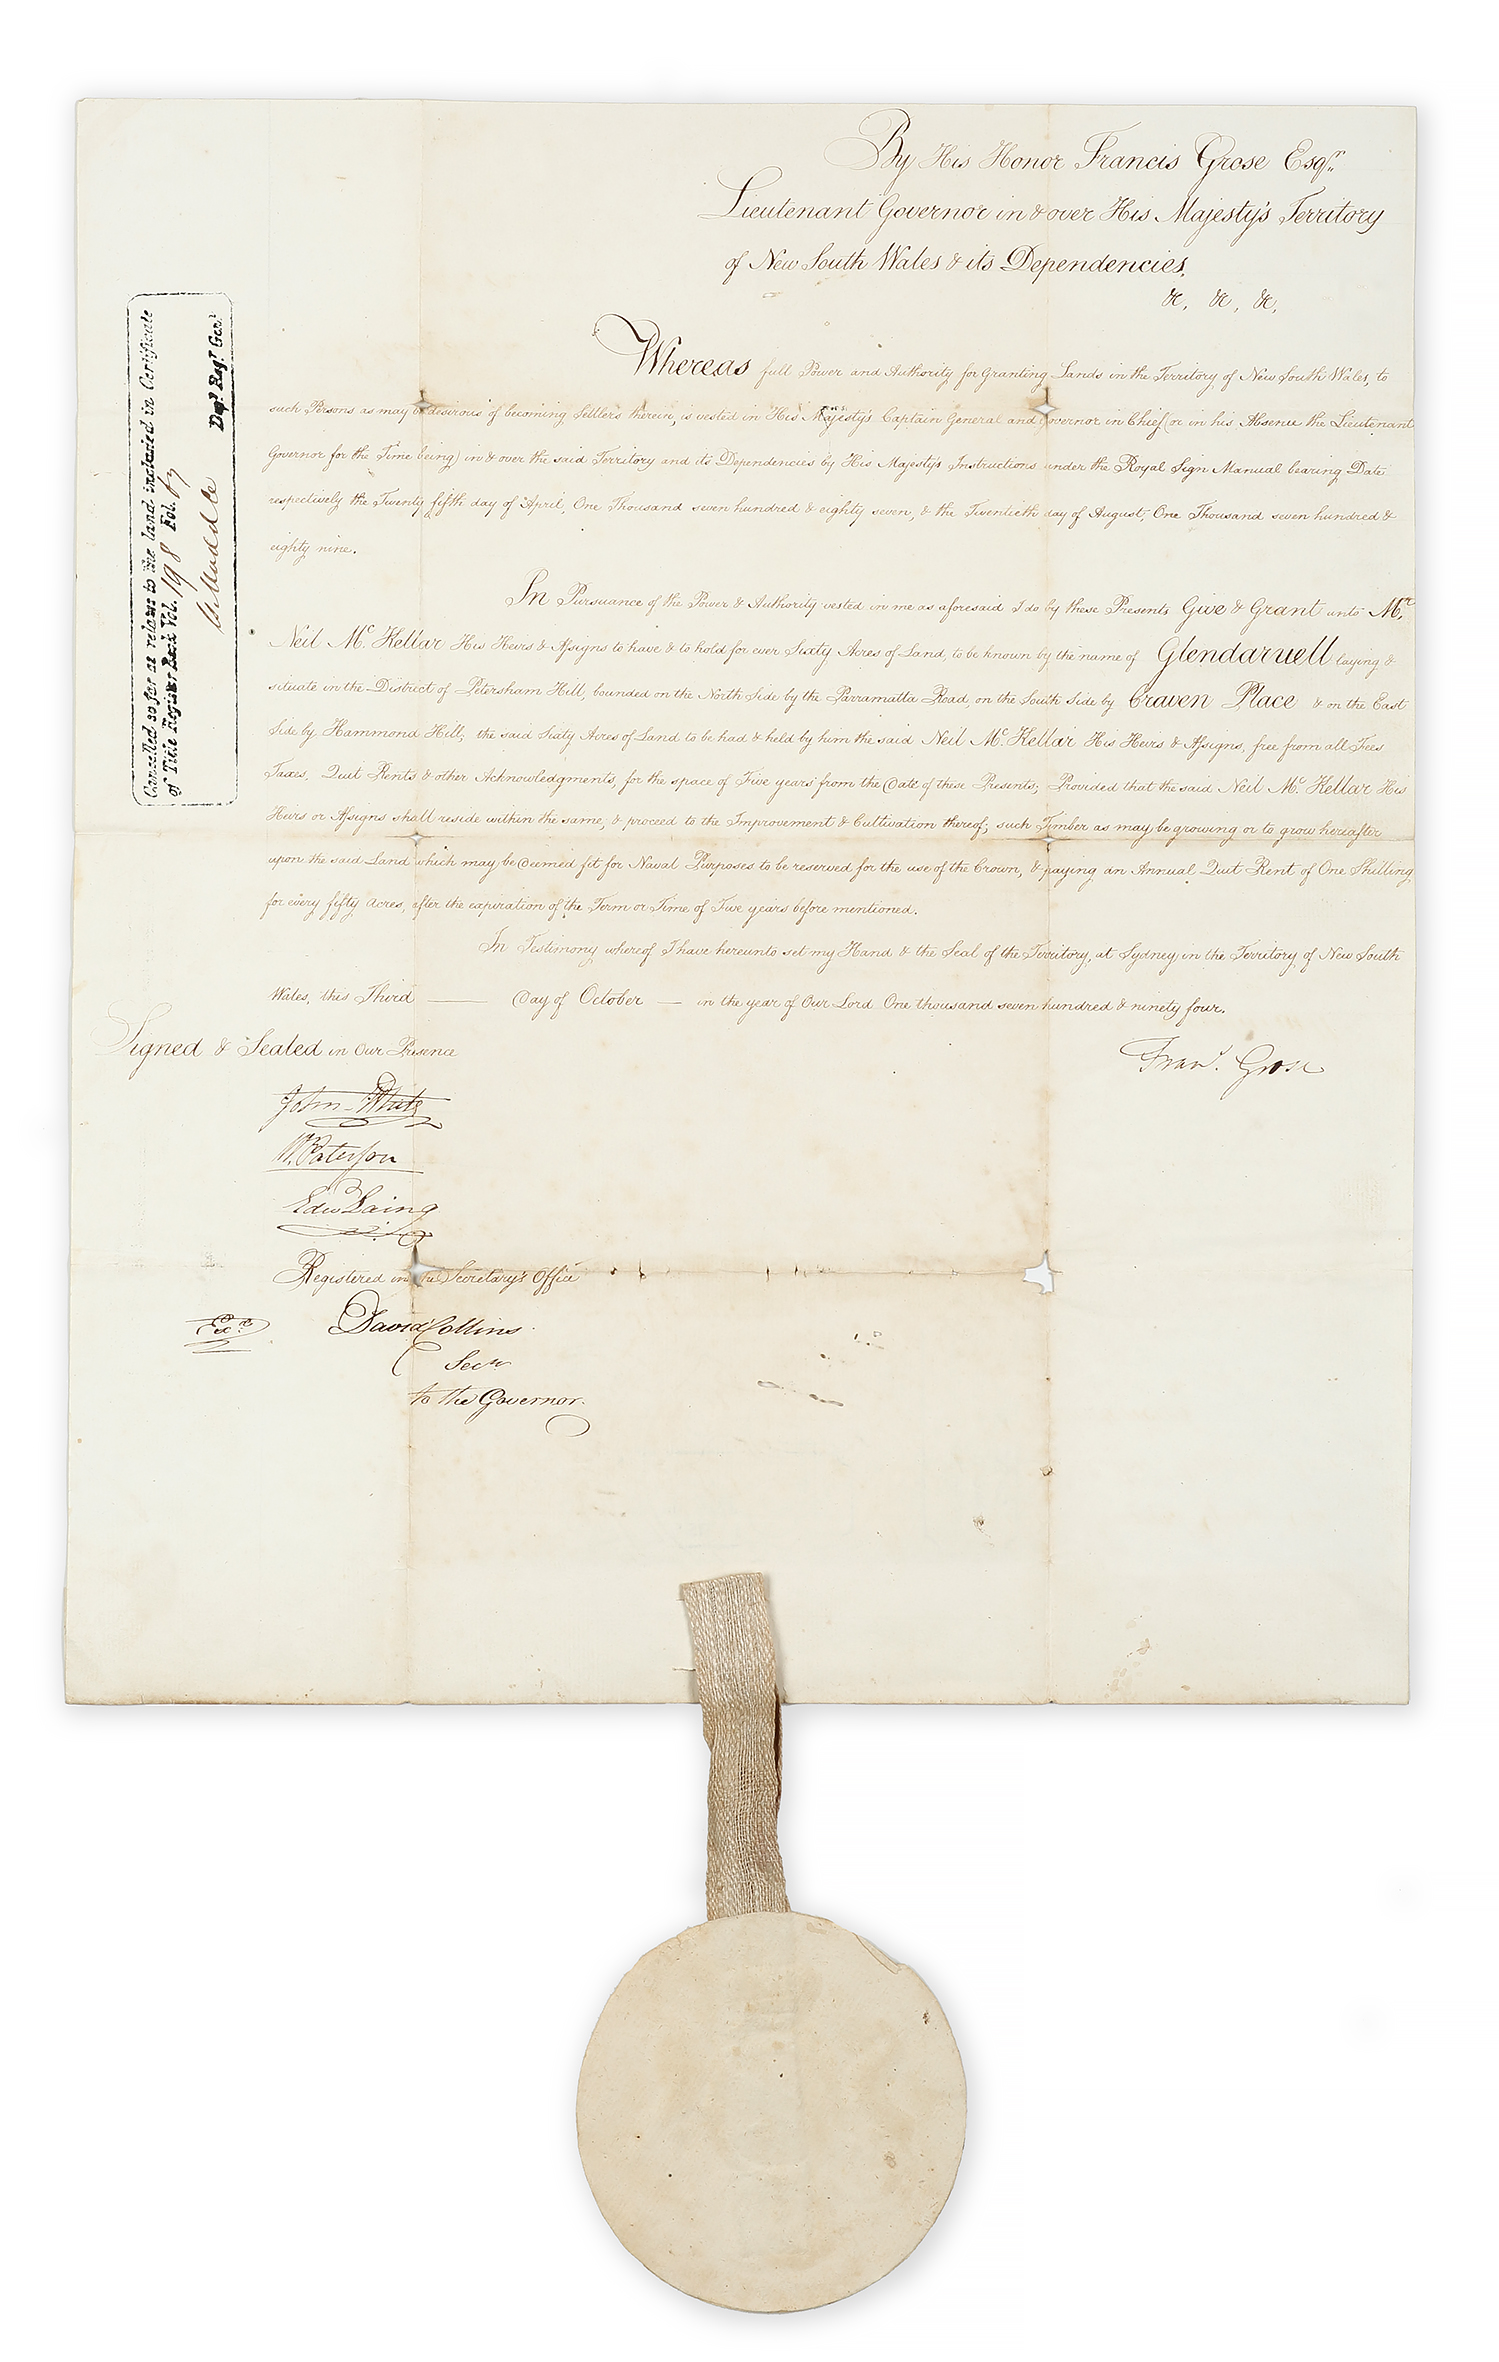 By His Honor Francis Grose Esqr.
Lieutenant Governor in & over His Majesty's Territory
of New South Wales & its Dependencies,
&c, &c, &c,
Whereas full Power and Authority for Granting Lands in the Territory of New South Wales, to
such Persons as may be desirous of becoming Settlers therein, is vested in His Majesty's Captain General and Governor in Chief (or in his Absence the Lieutenant
Governor for the Time being) in & over the said Territory and its Dependencies by His Majesty's Instructions under the Royal Sign Manual bearing Date
respectively the Twenty fifth day of April, One Thousand seven hundred & eighty seven, & the Twentieth day of August, One Thousand seven hundred &
eighty nine.
In Pursuance of the Power & Authority vested in me as aforesaid I do by these Presents Give & Grant unto Mr.
Neil Mc. Kellar His Heirs & Assigns to have & to hold for ever Sixty Acres of Land, to be known by the name of Glendaruell laying &
situate in the District of Petersham Hill, bounded on the North Side by the Parramatta Road, on the South Side by Craven Place & on the East
Side by Hammond Hill; the said Sixty Acres of Land to be had & held by him the said Neil Mc. Kellar His Heirs & Assigns, free from all Fees
Taxes, Quit Rents & other Acknowledgments, for the space of Five years from the Date of these Presents; Provided that the said Neil Mc. Kellar His
Heirs or Assigns shall reside within the same, & proceed to the Improvement & Cultivation thereof; such Timber as may be growing or to grow hereafter
upon the said Land which may be Deemed fit for Naval Purposes to be reserved for the use of the Crown, & paying an Annual Quit Rent of One Shilling
for every fifty Acres, after the expiration of the Term or Time of Five years before mentioned.
In Testimony whereof I have hereunto set my Hand & the Seal of the Territory, at Sydney in the Territory of New South
Wales, this Third Day of October in the year of Our Lord One thousand seven hundred & ninety four.
Signed & Sealed in Our Presence
Fran.s Grose
John White
W. Paterson
Edw Laing
Registered in the Secretary's Office
David Collins
Secy
to the Governor.
Cancelled so far as relates to the land included in Certificate
of Title Register Book Vol. 198 Fol. 67
Depy Regr Genl